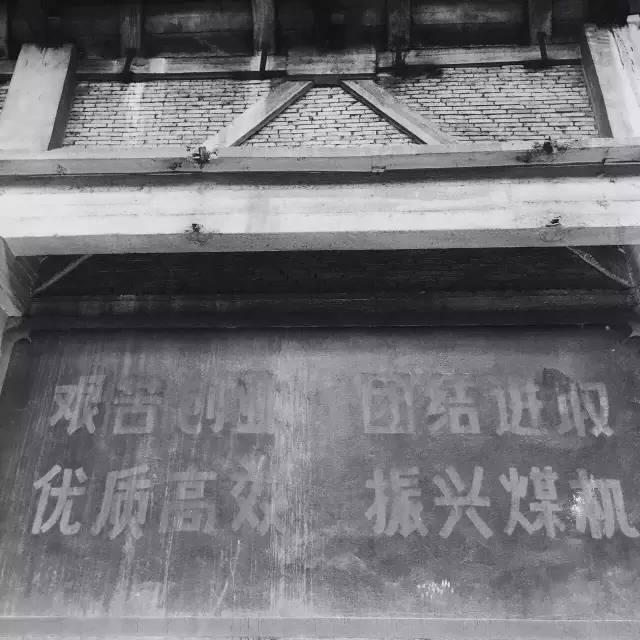 艰苦创业 团结进取
优质高效 振兴煤机